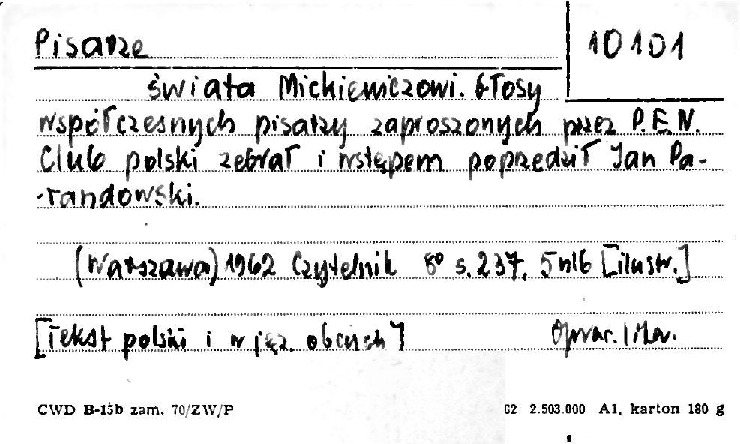 Pisarze 10101
świata Mickiewiczowi. Głosy
współczesnych pisarzy zaproszonych przez P.E.N.
Club polski zebrał i wstępem poprzedził Jan Pa-
randowski.
(Warszawa) 1962 Czytelnik 8° s. 237, 5 nlb [ilustr.]
[Tekst polski i w jęz. obcych]
CWD B-15b zam. 70/ZW/P 62 2.503.000 A1, karton 180 g